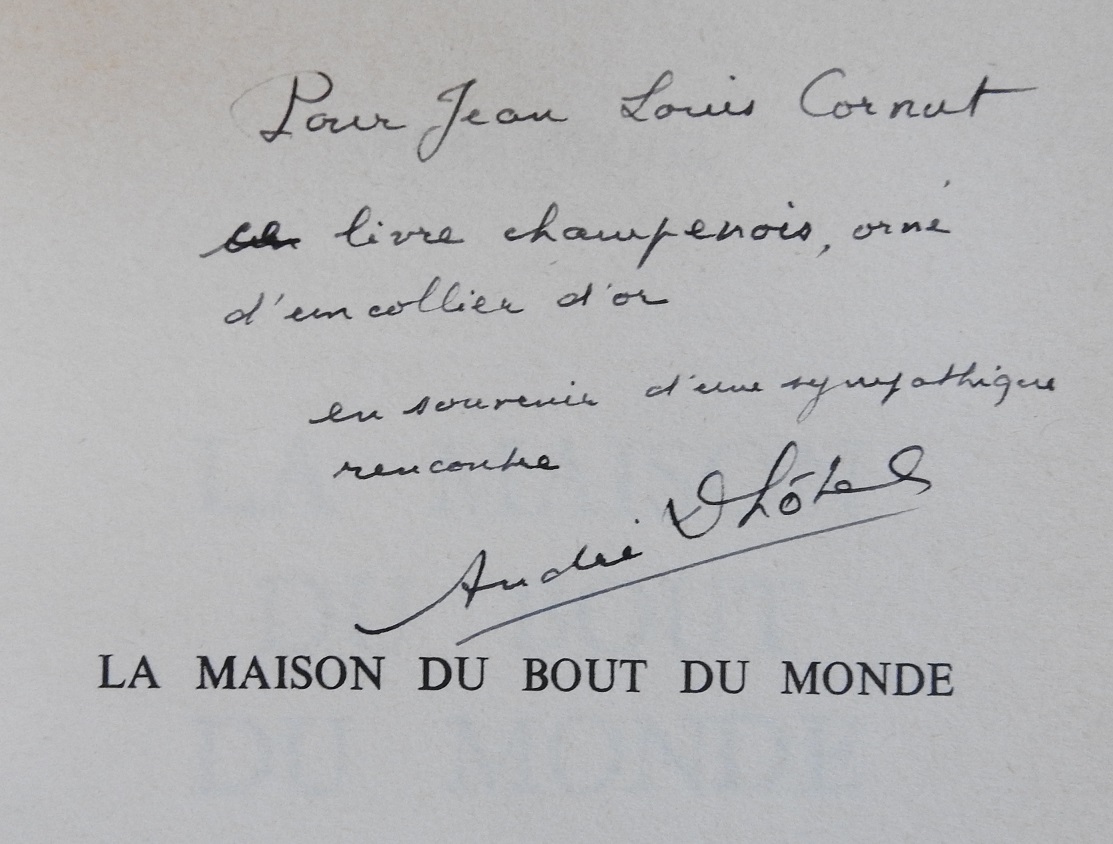 Pour Jean Louis Cornut
ce livre champenois, orné
d'un collier d'or
en souvenir d'une sympathique
rencontre
André Dhôtel
LA MAISON DU BOUT DU MONDE